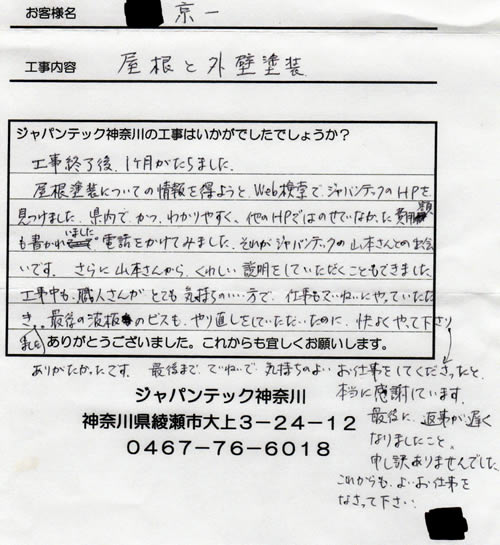 お客様名 京一
工事内容 屋根と外壁塗装
ジャパンテック神奈川の工事はいかがでしたでしょうか？
工事終了後、1ヶ月がたちました。
屋根塗装についての情報を得ようと、Web検索で、ジャパンテックのHPを
見つけました。県内で、かつ、わかりやすく、他のHPではのせていなかった費用額
も書かれていました 電話をかけてみました。それがジャパンテックの山本さんとのお会
いです。さらに山本さんから、くわしい説明をしていただくこともできました。
工事中も、職人さんがとても気持ちのいい方で、仕事もていねいにやっていただ
き。最後の波板のビスも、やり直しをしていただいたのに、快よくやって下さり
ありがとうございました。これからも宜しくお願いします。
ありがたかったです。最後まで、ていねいで、気持ちのよいお仕事をしてくださったと、
本当に感謝しています。
最後に、返事が遅く
なりましたこと。
申し訳ありませんでした。
これからも、よいお仕事を
なさって下さい。
ジャパンテック神奈川
神奈川県綾瀬市大上3－24－12
0467－76－6018